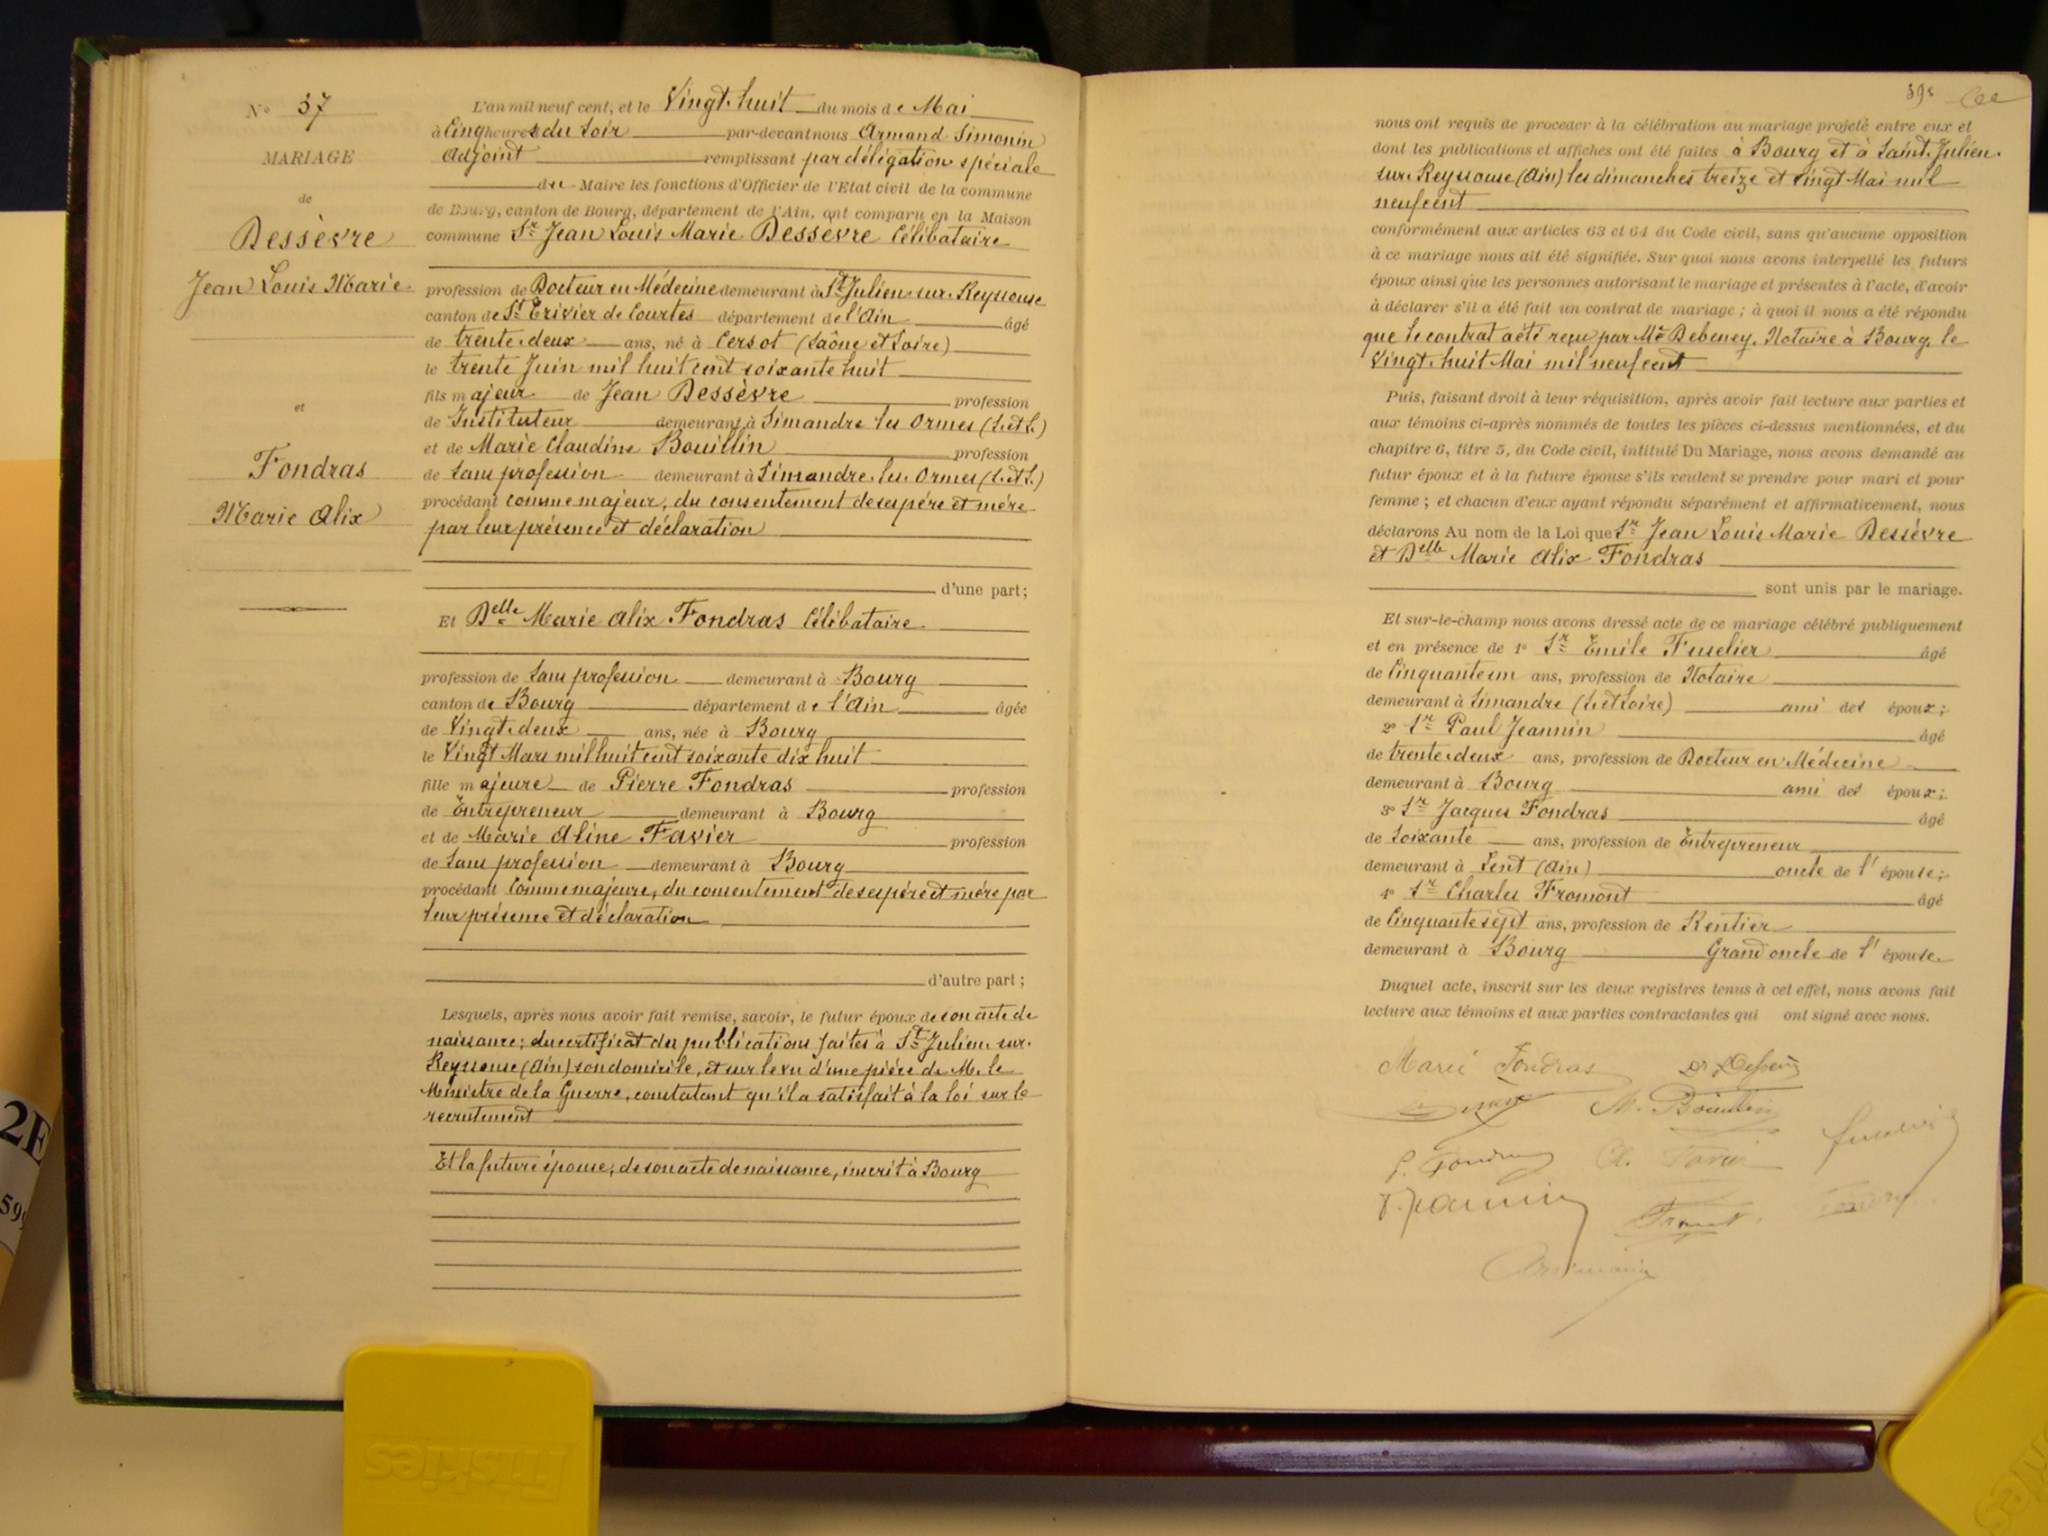 N° 37
MARIAGE
de
Dessèvre
Jean Louis Marie
et
Fondras
Marie Alix
L'an mil neuf cent, et le Vingt-huit du mois de Mai
à Cinq heures du Soir par-devant nous Armand Simonin
Adjoint remplissant par déligation spéciale
du Maire les fonctions d'Officier de l'Etat civil de la commune
de Bourg, canton de Bourg, département de l'Ain, ont comparu en la Maison
commune Sr Jean Louis Marie Dessèvre Célibataire
profession de Docteur en Médecine demeurant à St Julien-sur-Reyssouse
canton de St Trivier de Courtes département de l'Ain âgé
de trente-deux ans, né à Cersot (Saône et Loire)
le trente Juin mil huit cent soixante huit
fils majeur de Jean Dessèvre profession
de Instituteur demeurant à Simandre les Ormes (S.et L.)
et de Marie Claudine Bouillin profession
de Sans profession demeurant à Simandre-les-Ormes (S.et L.)
procédant comme majeur, du consentement de ses père et mère
par leur présence et déclaration
d'une part;
Et Delle Marie Alix Fondras Célibataire
profession de Sans profession demeurant à Bourg
canton de Bourg département de l'Ain âgée
de Vingt-deux ans, née à Bourg
le Vingt Mars mil huit cent soixante dix huit
fille majeure de Pierre Fondras profession
de Entrepreneur demeurant à Bourg
et de Marie Aline Favier profession
de Sans profession demeurant à Bourg
procédant Comme majeure, du consentement de ses père et mère par
leur présence et déclaration
d'autre part;
Lesquels, après nous avoir fait remise, savoir, le futur époux de son acte de
naissance; du certificat des publications faites à St Julien-sur-
Reyssouse (Ain) son domicile, et sur le vu d'une pièce de M. le
Ministre de la Guerre, constatant qu'il a satisfait à la loi sur le
recrutement
Et la future épouse, de son acte de naissance, inscrit à Bourg
nous ont requis de procéder à la célébration du mariage projeté entre eux et
dont les publications et affiches ont été faites à Bourg et à Saint-Julien-
sur-Reyssouse (Ain) les dimanches treize et vingt Mai mil
neuf cent
conformément aux articles 63 et 64 du Code civil, sans qu'aucune opposition
à ce mariage nous ait été signifiée. Sur quoi nous avons interpellé les futurs
époux ainsi que les personnes autorisant le mariage et présentes à l'acte, d'avoir
à déclarer s'il a été fait un contrat de mariage; à quoi il nous a été répondu
que le contrat a été reçu par Me Debeney, Notaire à Bourg, le
Vingt-huit Mai mil neuf cent
Puis, faisant droit à leur réquisition, après avoir fait lecture aux parties et
aux témoins ci-après nommés de toutes les pièces ci-dessus mentionnées, et du
chapitre 6, titre 5, du Code civil, intitulé Du Mariage, nous avons demandé au
futur époux et à la future épouse s'ils veulent se prendre pour mari et pour
femme; et chacun d'eux ayant répondu séparément et affirmativement, nous
déclarons Au nom de la Loi que Sr Jean Louis Marie Dessèvre
et Delle Marie Alix Fondras
sont unis par le mariage.
Et sur-le-champ nous avons dressé acte de ce mariage célébré publiquement
et en présence de 1° Sr Emile Fuselier âgé
de Cinquante un ans, profession de Notaire
demeurant à Simandre (S. et Loire) ami des époux;
2° Sr Paul Jeannin âgé
de trente-deux ans, profession de Docteur en Médecine
demeurant à Bourg ami des époux;
3° Sr Jacques Fondras âgé
de Soixante ans, profession de Entrepreneur
demeurant à Cent (Ain) oncle de l'épouse;
4° Sr Charles Fromont âgé
de Cinquante sept ans, profession de Rentier
demeurant à Bourg Grand oncle de l'épouse
Duquel acte, inscrit sur les deux registres tenus à cet effet, nous avons fait
lecture aux témoins et aux parties contractantes qui ont signé avec nous.
Marie Fondras
M. Bouillin
P. Fondras
A. Favier
P. Jeannin
2E
59
Friskies